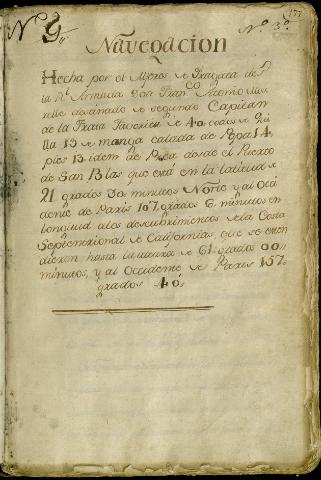 Nº 9
Nº 3º
177
Navegacion
Hecha por el Alferez de Fragata de
la Rl Armada Don Franco Antonio Mau
relle destinado de segundo Capitan
de la Frata Favorita de 40 codos de Qui
lla 13 de manga calada de Popa 14
pies 13 idem de Proa desde el Puerto
de San Blas que está en la latitud de
21 grados 30 minutos Norte y al Occi
dente de Paris 107 grados 6 minutos en
longitud a los descubrimientos de la Costa
Septentrional de Californias, que se exten
dieron hasta la altura de 61 grados 00
minutos, y al Occidente de Paris 157
grados 40